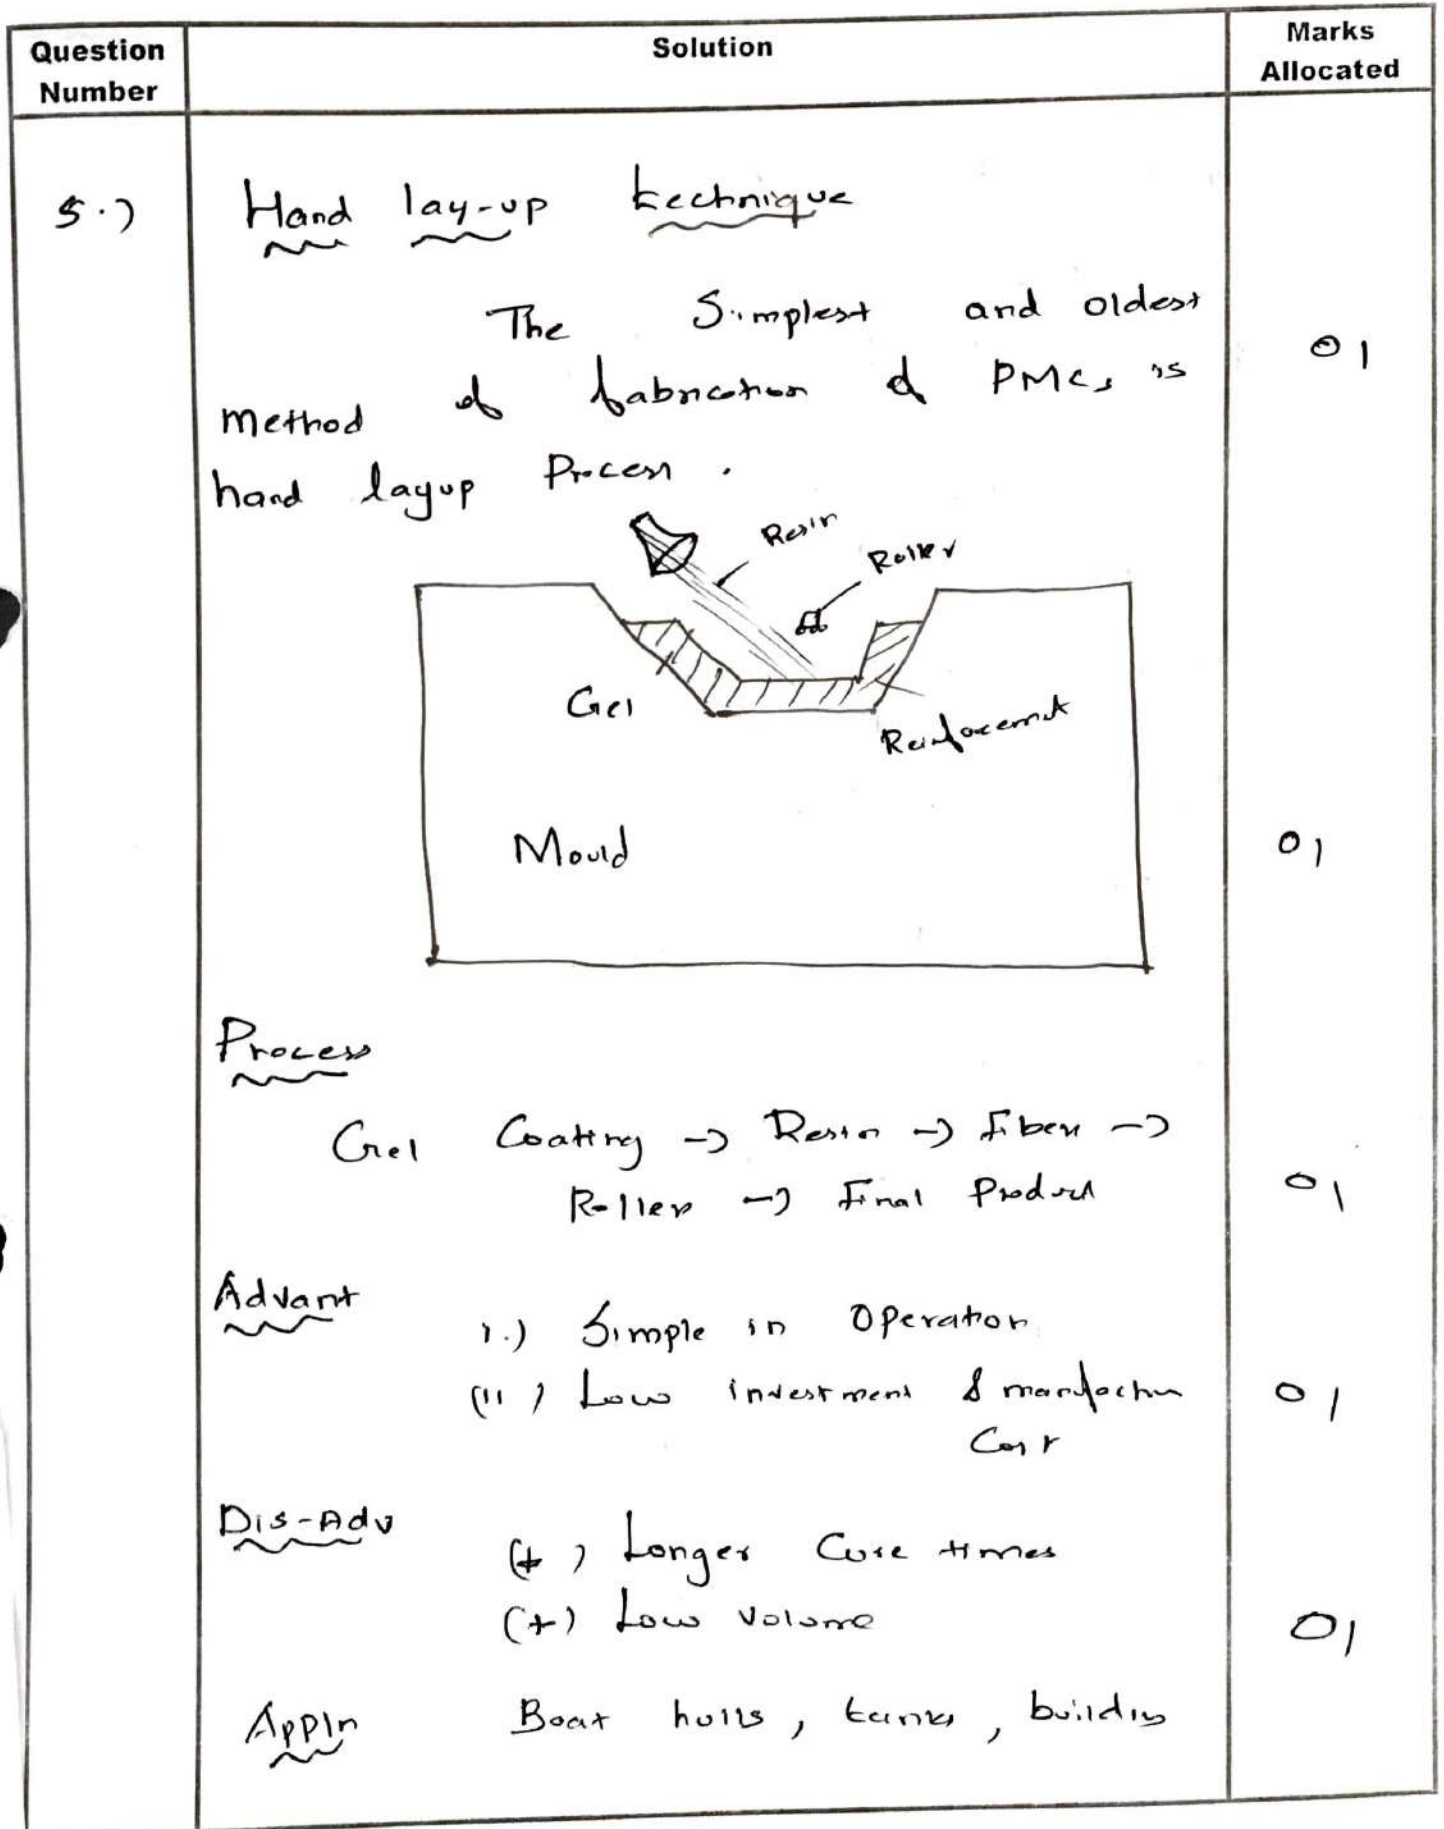 Question Number
Solution
Marks Allocated
5.)
Hand lay-up technique
The Simplest and oldest
01
method of fabrication of PMCs is
hand layup Process .
Resin
Roller
Gel
Reinforcement
Mould
01
Process
Gel Coating -> Resin -> Fiber ->
Roller -> Final Product
01
Advant
i.) Simple in Operation
(ii) Low investment & manufactur
01
Cost
Dis-Adv
(+) Longer Cure times
(+) Low Volume
01
Appln Boat hulls, tanks, building